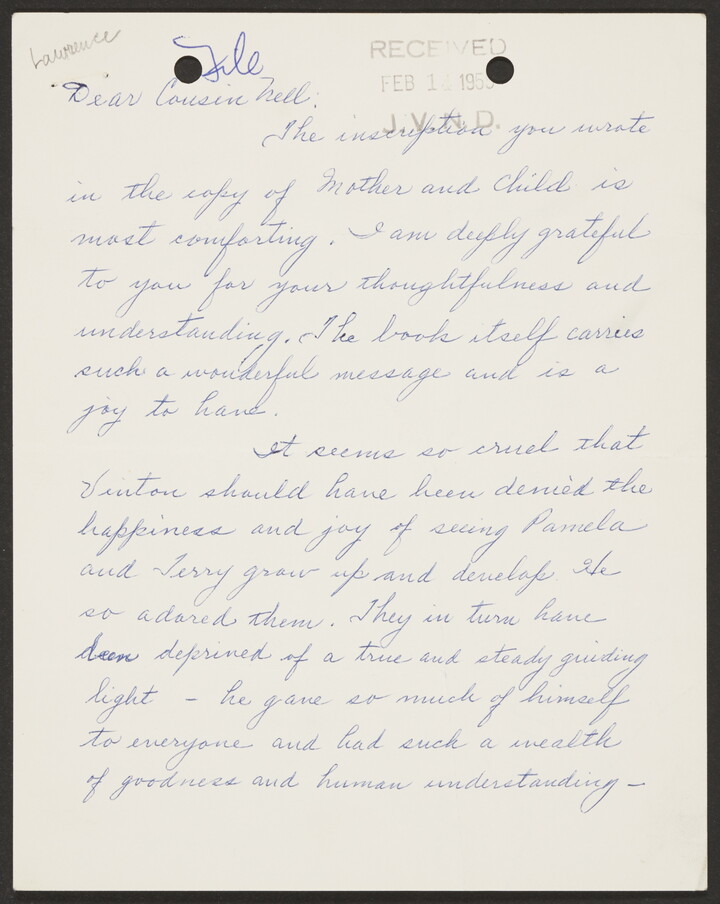 Lawrence
File
RECEIVED
FEB 1 1953
J.V.N.D.
Dear Cousin Nell:
The inscription you wrote
in the copy of Mother and Child is
most comforting. I am deeply grateful
to you for your thoughtfulness and
understanding. The book itself carries
such a wonderful message and is a
joy to have.
It seems so cruel that
Vinton should have been denied the
happiness and joy of seeing Pamela
and Terry grow up and develop. He
so adored them. They in turn have
been deprived of a true and steady guiding
light – he gave so much of himself
to everyone and had such a wealth
of goodness and human understanding –